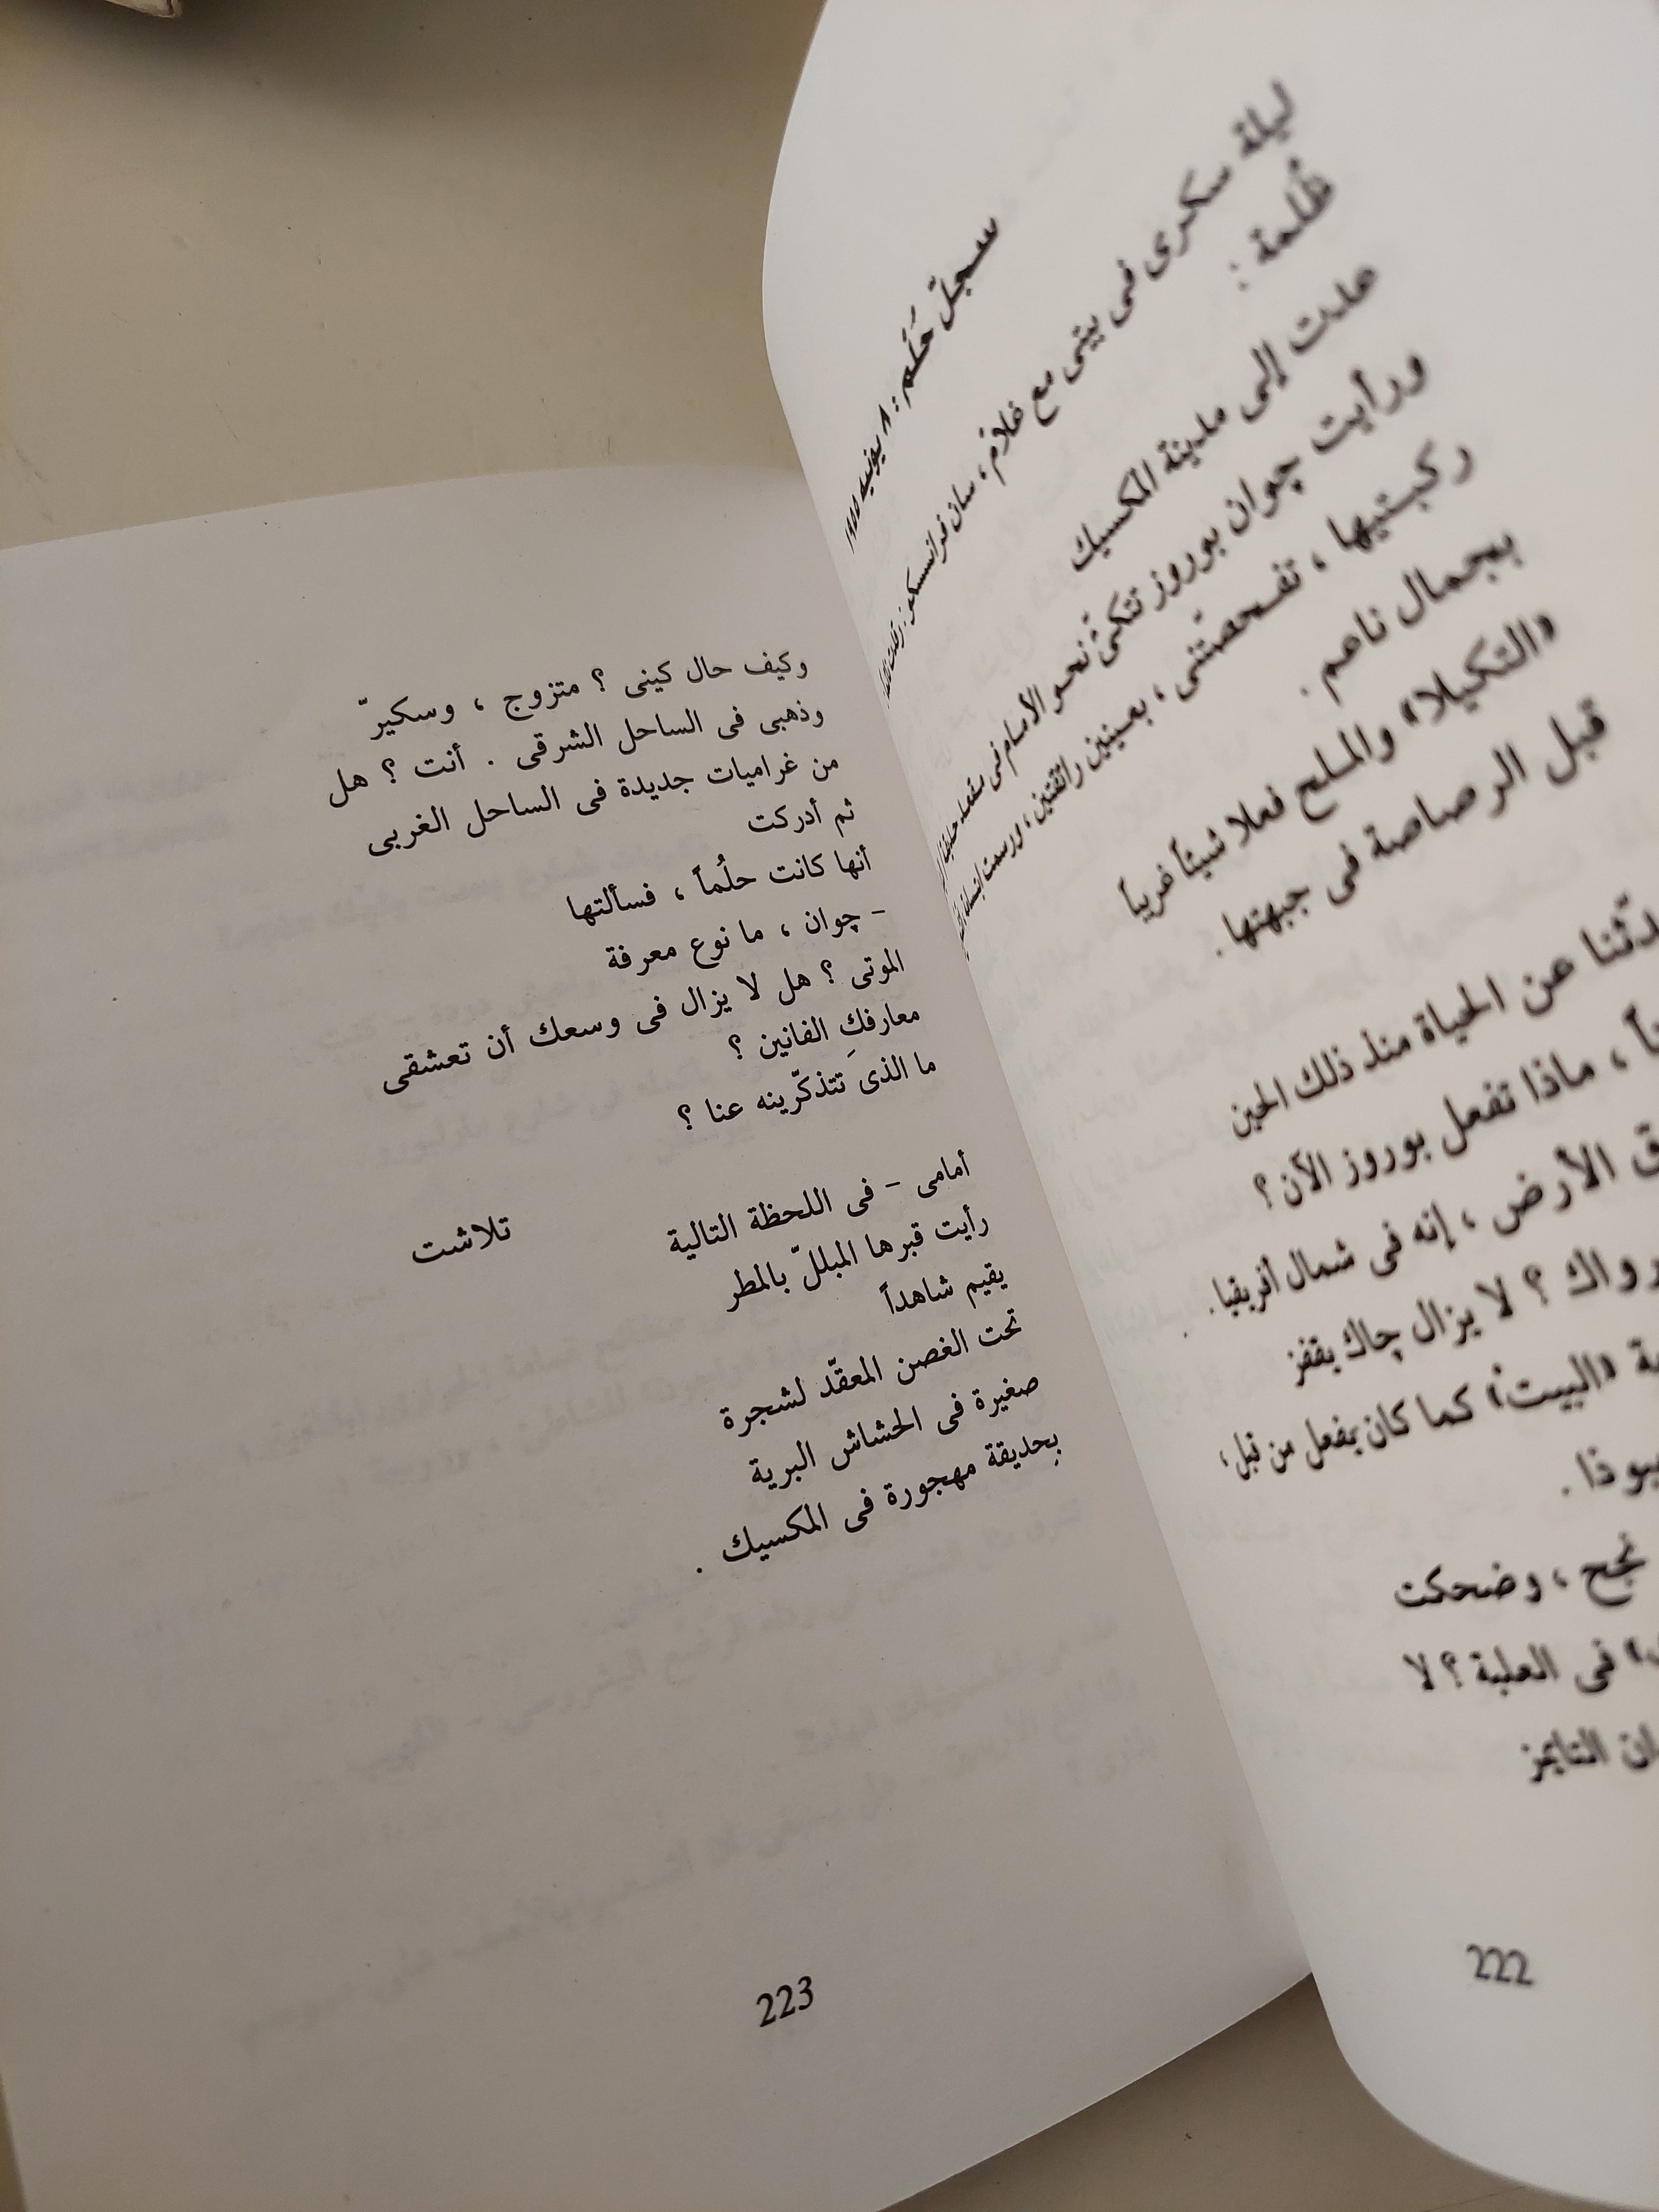 سجلّ حُلُم : ٨ يونيه ١٩٥٥
ليلة سكرى فى بيتى مع غلامٌ ، سان فرانسسكو :
ظُلمة :
عدت إلى مدينة المكسيك
ورأيت چوان بوروز تتكئُ نحو الأمام فى مقعد
ركبتيها ، تفحصّتنى ، بعينين رائقتين ، ورسمت
بجمال ناعم .
«التكيلا» والملح فعلا شيئاً غريباً
قبل الرصاصة فى جبهتها .
عن الحياة منذ ذلك الحين
، ماذا تفعل بوروز الآن ؟
الأرض ، إنه فى شمال أفريقيا .
؟ لا يزال چاك يقفز
«البيت» كما كان يفعل من قبل ،
بوذا .
نجح ، وضحكت
فى العلبة ؟ لا
التايمز
222
وكيف حال كينى ؟ متزوج ، وسكيرّ
وذهبى فى الساحل الشرقى . أنت ؟ هل
من غراميات جديدة فى الساحل الغربى
ثم أدركت
أنها كانت حلُماً ، فسألتها
- چوان ، ما نوع معرفة
الموتى ؟ هل لا يزال فى وسعك أن تعشقى
معارفكِ الفانين ؟
ما الذى تتذكّرينه عنا ؟
تلاشت
أمامى - فى اللحظة التالية
رأيت قبرها المبللّ بالمطر
يقيم شاهداً
تحت الغصن المعقّد لشجرة
صغيرة فى الحشاش البرية
بِحديقة مهجورة فى المكسيك .
223